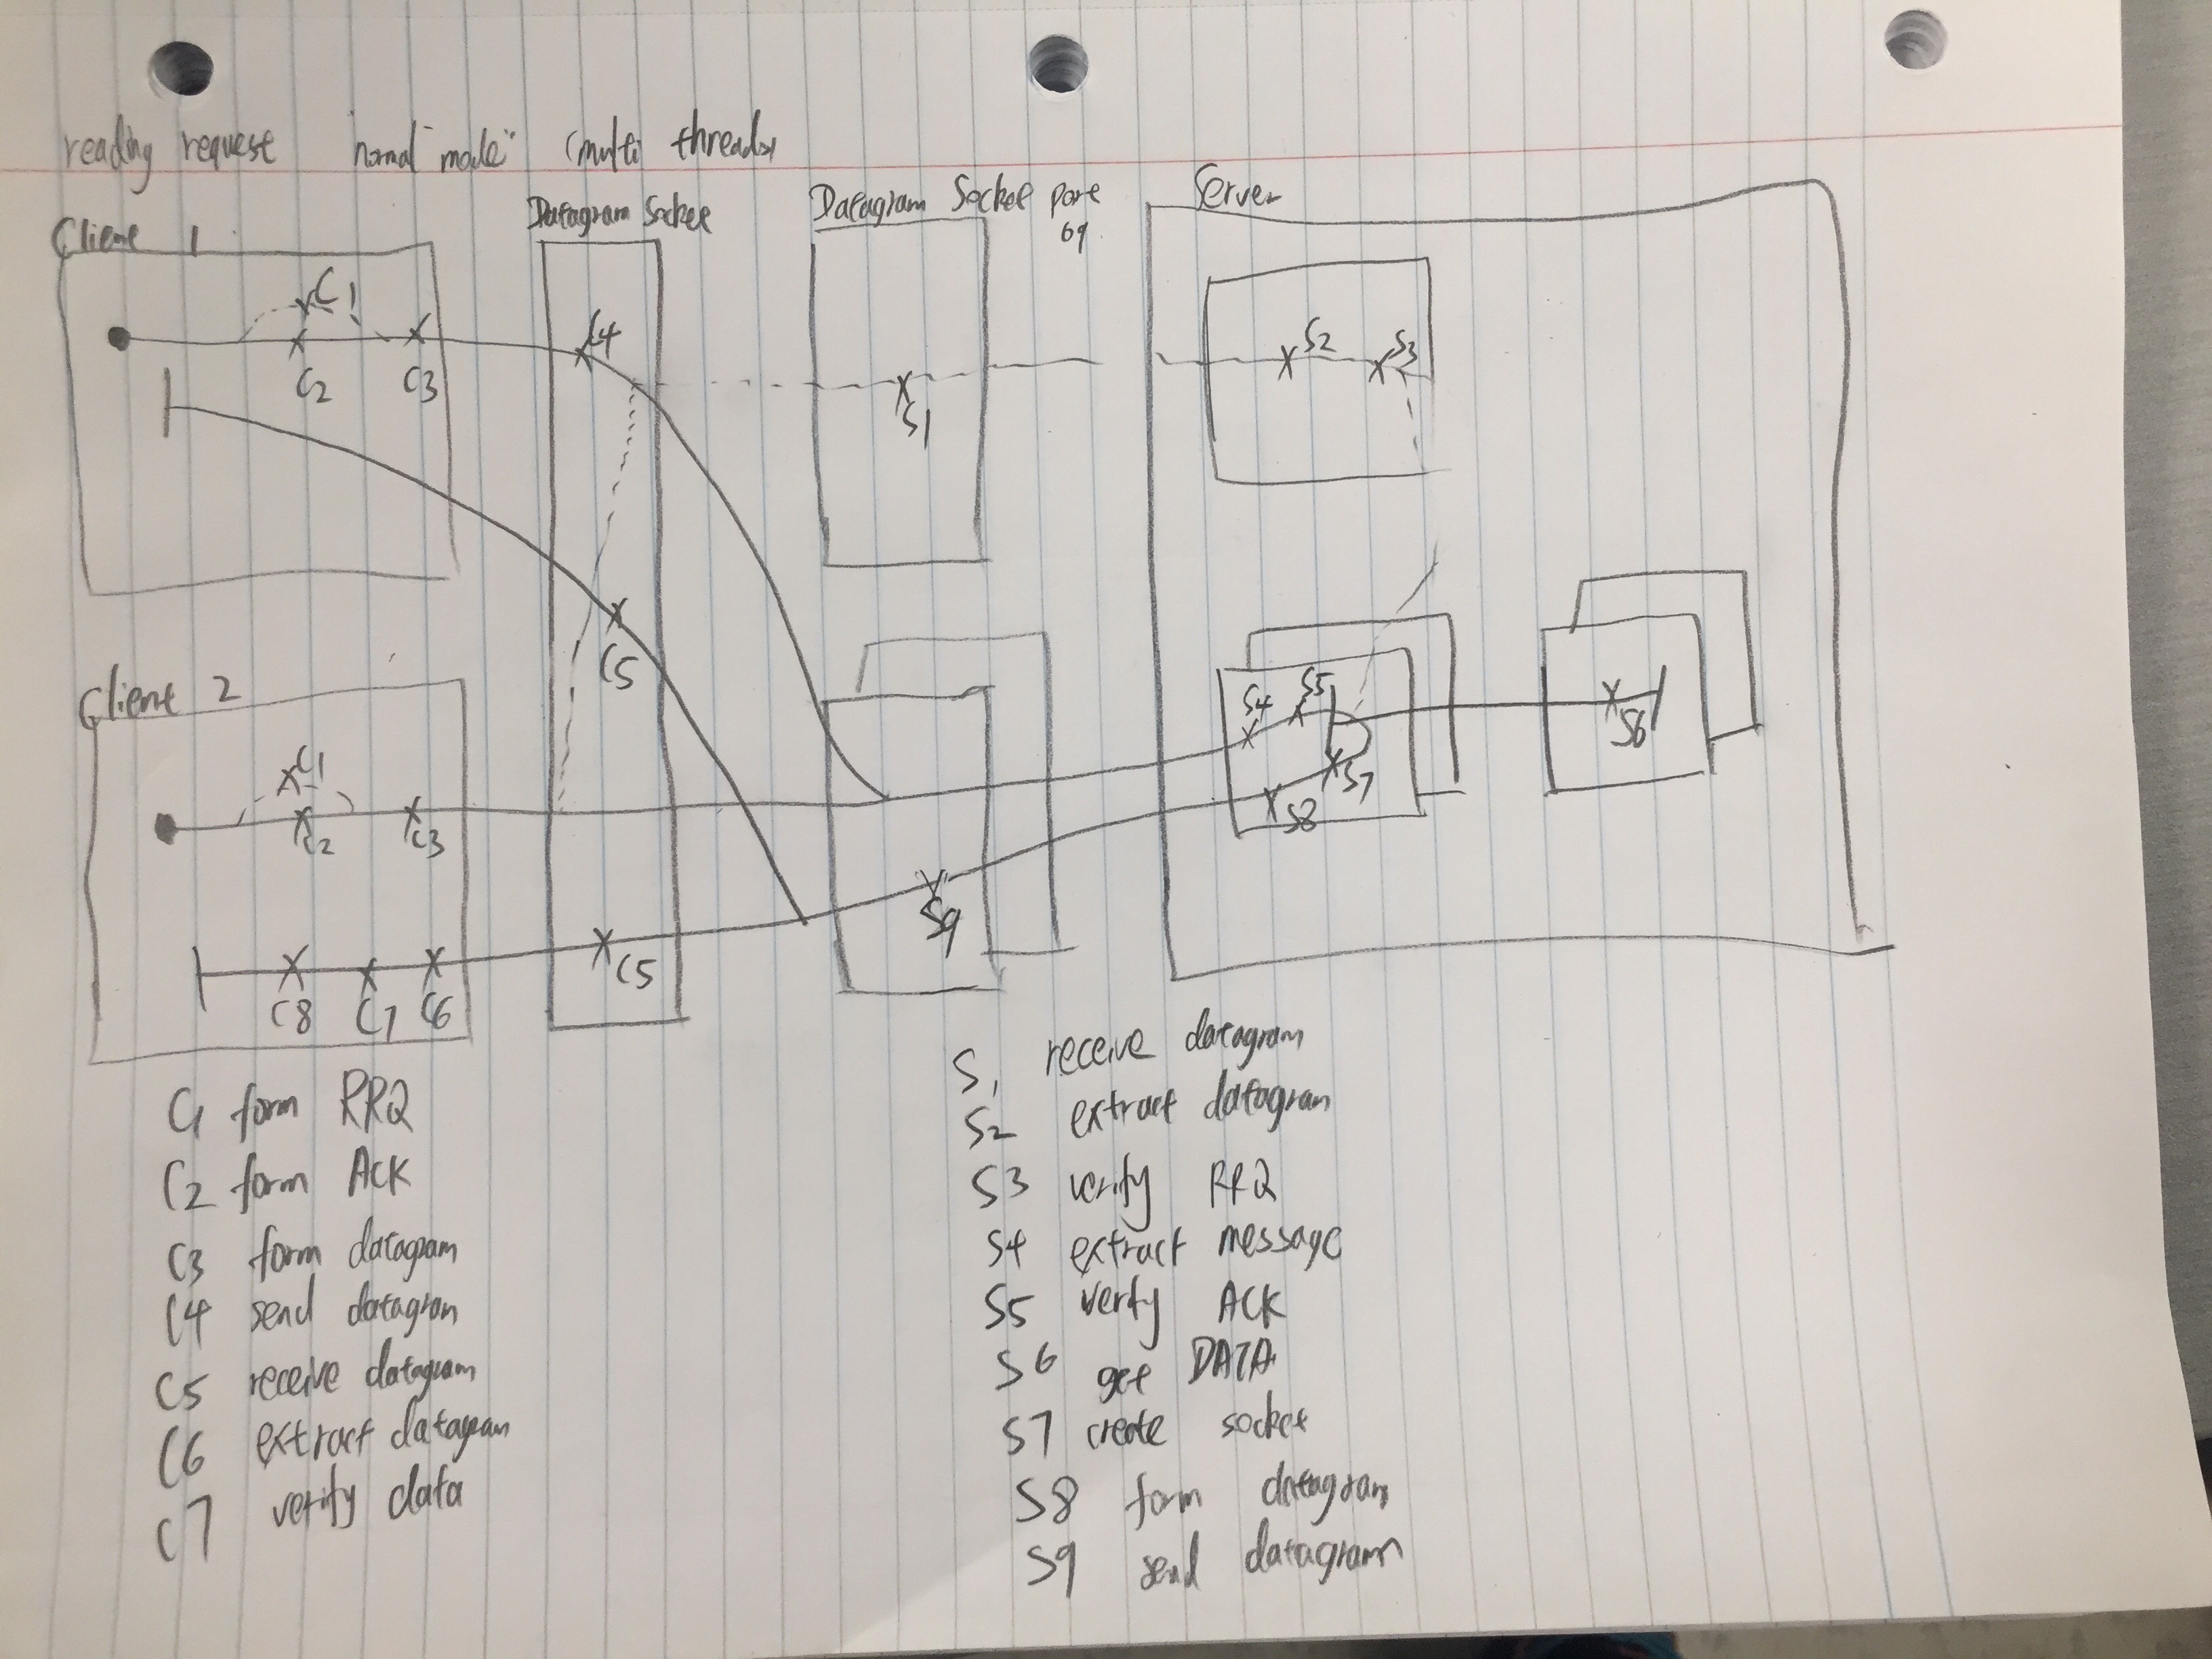 reading request "normal mode" (multi threads)
Datagram Socket
Datagram Socket port
69
Server
Client 1
C1
C2
C3
C4
S1
S2
S3
C5
Client 2
C1
C2
C3
S4
S5
S6
S7
S8
S9
C5
C8
C7
C6
C1 form RRQ
C2 form ACK
C3 form datagram
C4 send datagram
C5 receive datagram
C6 extract datagram
C7 verify data
S1 receive datagram
S2 extract datagram
S3 verify RRQ
S4 extract message
S5 verify ACK
S6 get DATA
S7 create socket
S8 form datagram
S9 send datagram